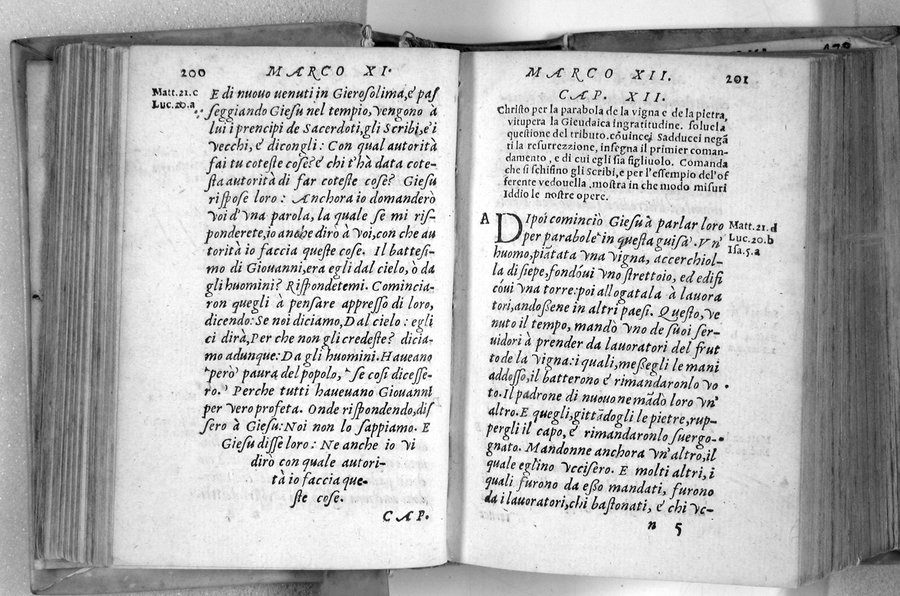 200 MARCO XI.
Matt.21.c
Luc.20.a
E di nuouo uenuti in Gierosolima, é paſ
ſeggiando Gieſu nel tempio, vengono à
lui i prencipi de Sacerdoti, gli Scribi, e i
vecchi, é dicongli: Con qual autorità
fai tu coteſte coſe? é chi t'hà data cote-
ſta autorità di far coteſte coſe? Gieſu
riſpoſe loro: Anchora io domanderò
voi d'vna parola, la quale ſe mi riſ-
ponderete, io anche dirò à voi, con che au
torità io faccia queſte coſe. Il batteſi-
mo di Giouanni, era egli dal cielo, ò da
gli huomini? Riſpondetemi. Comincia-
ron quegli à penſare appreſſo di loro,
dicendo: Se noi diciamo, Dal cielo: egli
ci dirà, Per che non gli credeſte? dicia-
mo adunque: Da gli huomini. Haueano
però paura del popolo, ſe coſi diceſſe-
ro. Perche tutti haueuano Giouanni
per vero profeta. Onde riſpondendo, diſ
ſero à Gieſu: Noi non lo ſappiamo. E
Gieſu diſſe loro: Ne anche io vi
dirò con quale autori-
tà io faccia que-
ſte coſe.
CAP.
MARCO XII. 201
CAP. XII.
Chriſto per la parabola de la vigna e de la pietra,
vitupera la Giudaica ingratitudine. ſolue la
queſtione del tributo. cõuince i Sadducei negã
ti la reſurrezzione, inſegna il primier coman-
damento, e di cui egli ſia figliuolo. Comanda
che ſi ſchifino gli Scribi, e per l'eſſempio del'of
ferente vedouella, moſtra in che modo miſuri
Iddio le noſtre opere.
A
Dipoi cominciò Gieſu à parlar loro
per parabole in queſta guiſa. Vn'
huomo, piãtata vna vigna, accerchiol-
la di ſiepe, fondoui vno ſtrettoio, ed edifi
coui vna torre: poi allogatala à lauora
tori, andoſſene in altri paeſi. Queſto, ve
nuto il tempo, mandò vno de ſuoi ſer-
uidori à prender da lauoratori del frut
to de la vigna: i quali, meſſegli le mani
addoſſo, il batterono é rimandaronlo vo
to. Il padrone di nuouo ne mãdò loro vn'
altro. E quegli, gittãdogli le pietre, rup-
pergli il capo, é rimandaronlo ſuergo-
gnato. Mandonne anchora vn'altro, il
quale eglino vcciſero. E molti altri, i
quali furono da eſſo mandati, furono
da i lauoratori, chi baſtonati, é chi vc-
n 5
Matt.21.d
Luc.20.b
Iſa.5.a